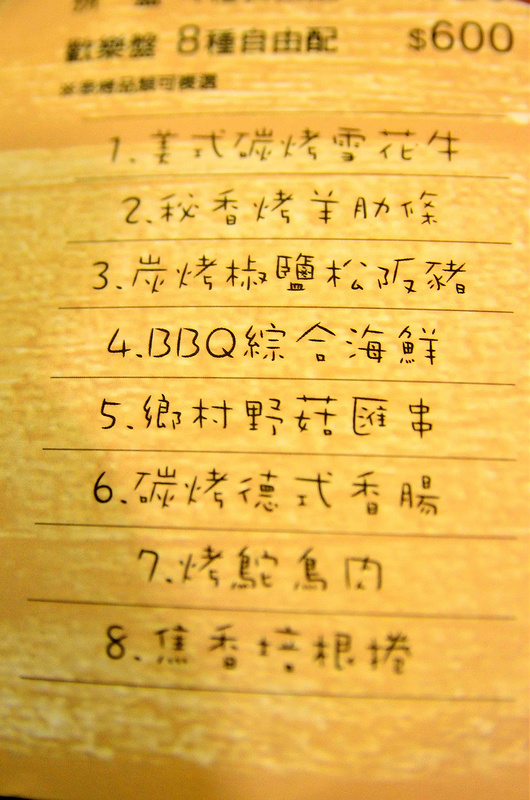 歡樂盤 8種自由配 $600
1.美式碳烤雪花牛
2.秘香烤羊肋條
3.炭烤椒鹽松阪豬
4.BBQ綜合海鮮
5.鄉村野菇匯串
6.碳烤德式香腸
7.烤鴕鳥肉
8.焦香培根捲